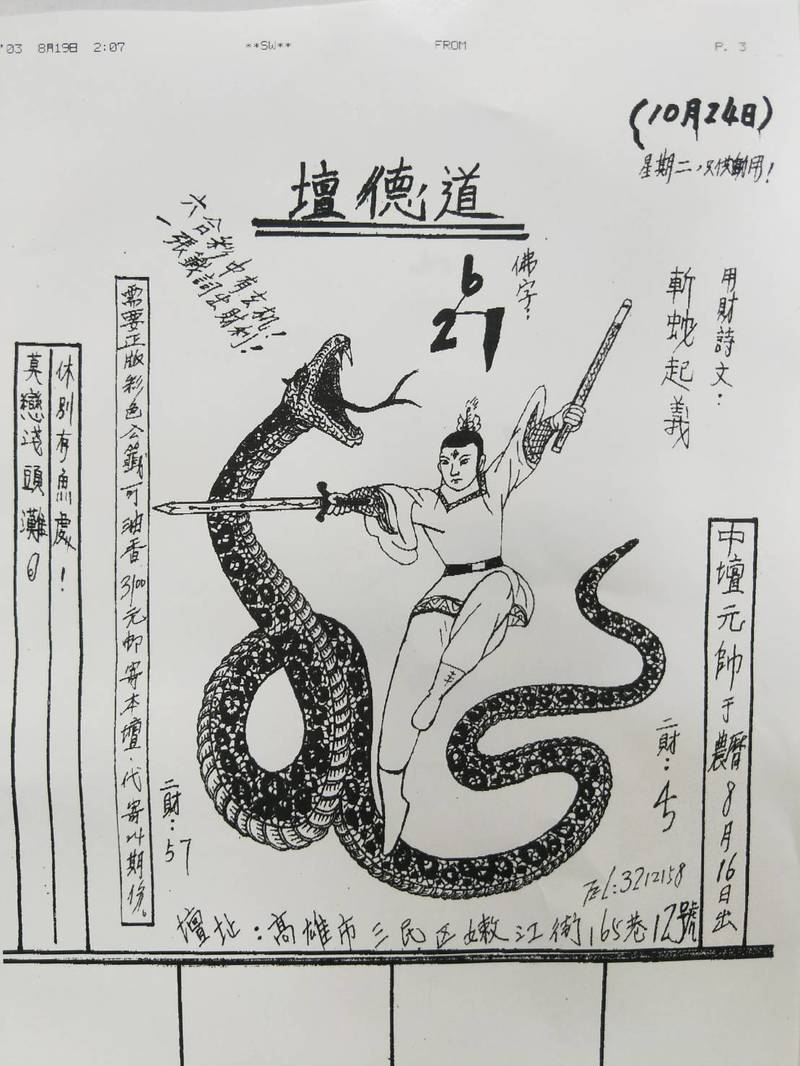 '03 8月19日 2:07 **SW** FROM P. 3
(10月24日)
星期二，只供動用！
壇德道
六合彩中有玄机！
一張籤詞出勝利！
佛字：
6
27
用財詩文：
斬蛇起義
需要正版彩色公籤可油香3100元郵寄本壇．代寄24期份。
休別有魚處！
莫戀浅頭灘。
中壇元帥于農曆8月16日出
二財：45
二財：57
TEL:3212158
壇址：高雄市三民区嫩江街165巷12號